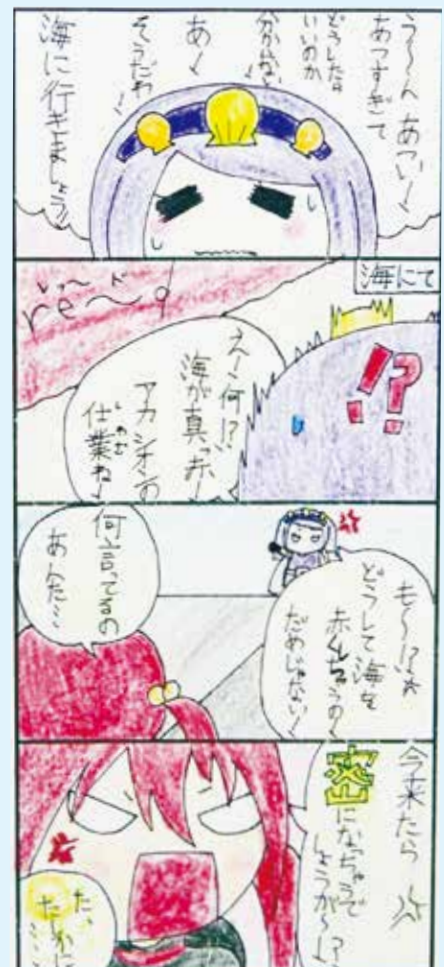 う〜ん あつい〜
あつすぎて
どうしたら
いいのか
分かんない〜
あ〜
そうだわ〜
海に行きましょう!!
海にて
!?
re〜d
え〜何!?
海が真っ赤〜
アカシオの
仕業ね〜
も〜!?
どうして海を
赤くしちゃうの〜
だめじゃない〜
何言ってるの
あんた…
今来たら
密になっちゃうで
しょうが〜!?
た、
たしかに
…